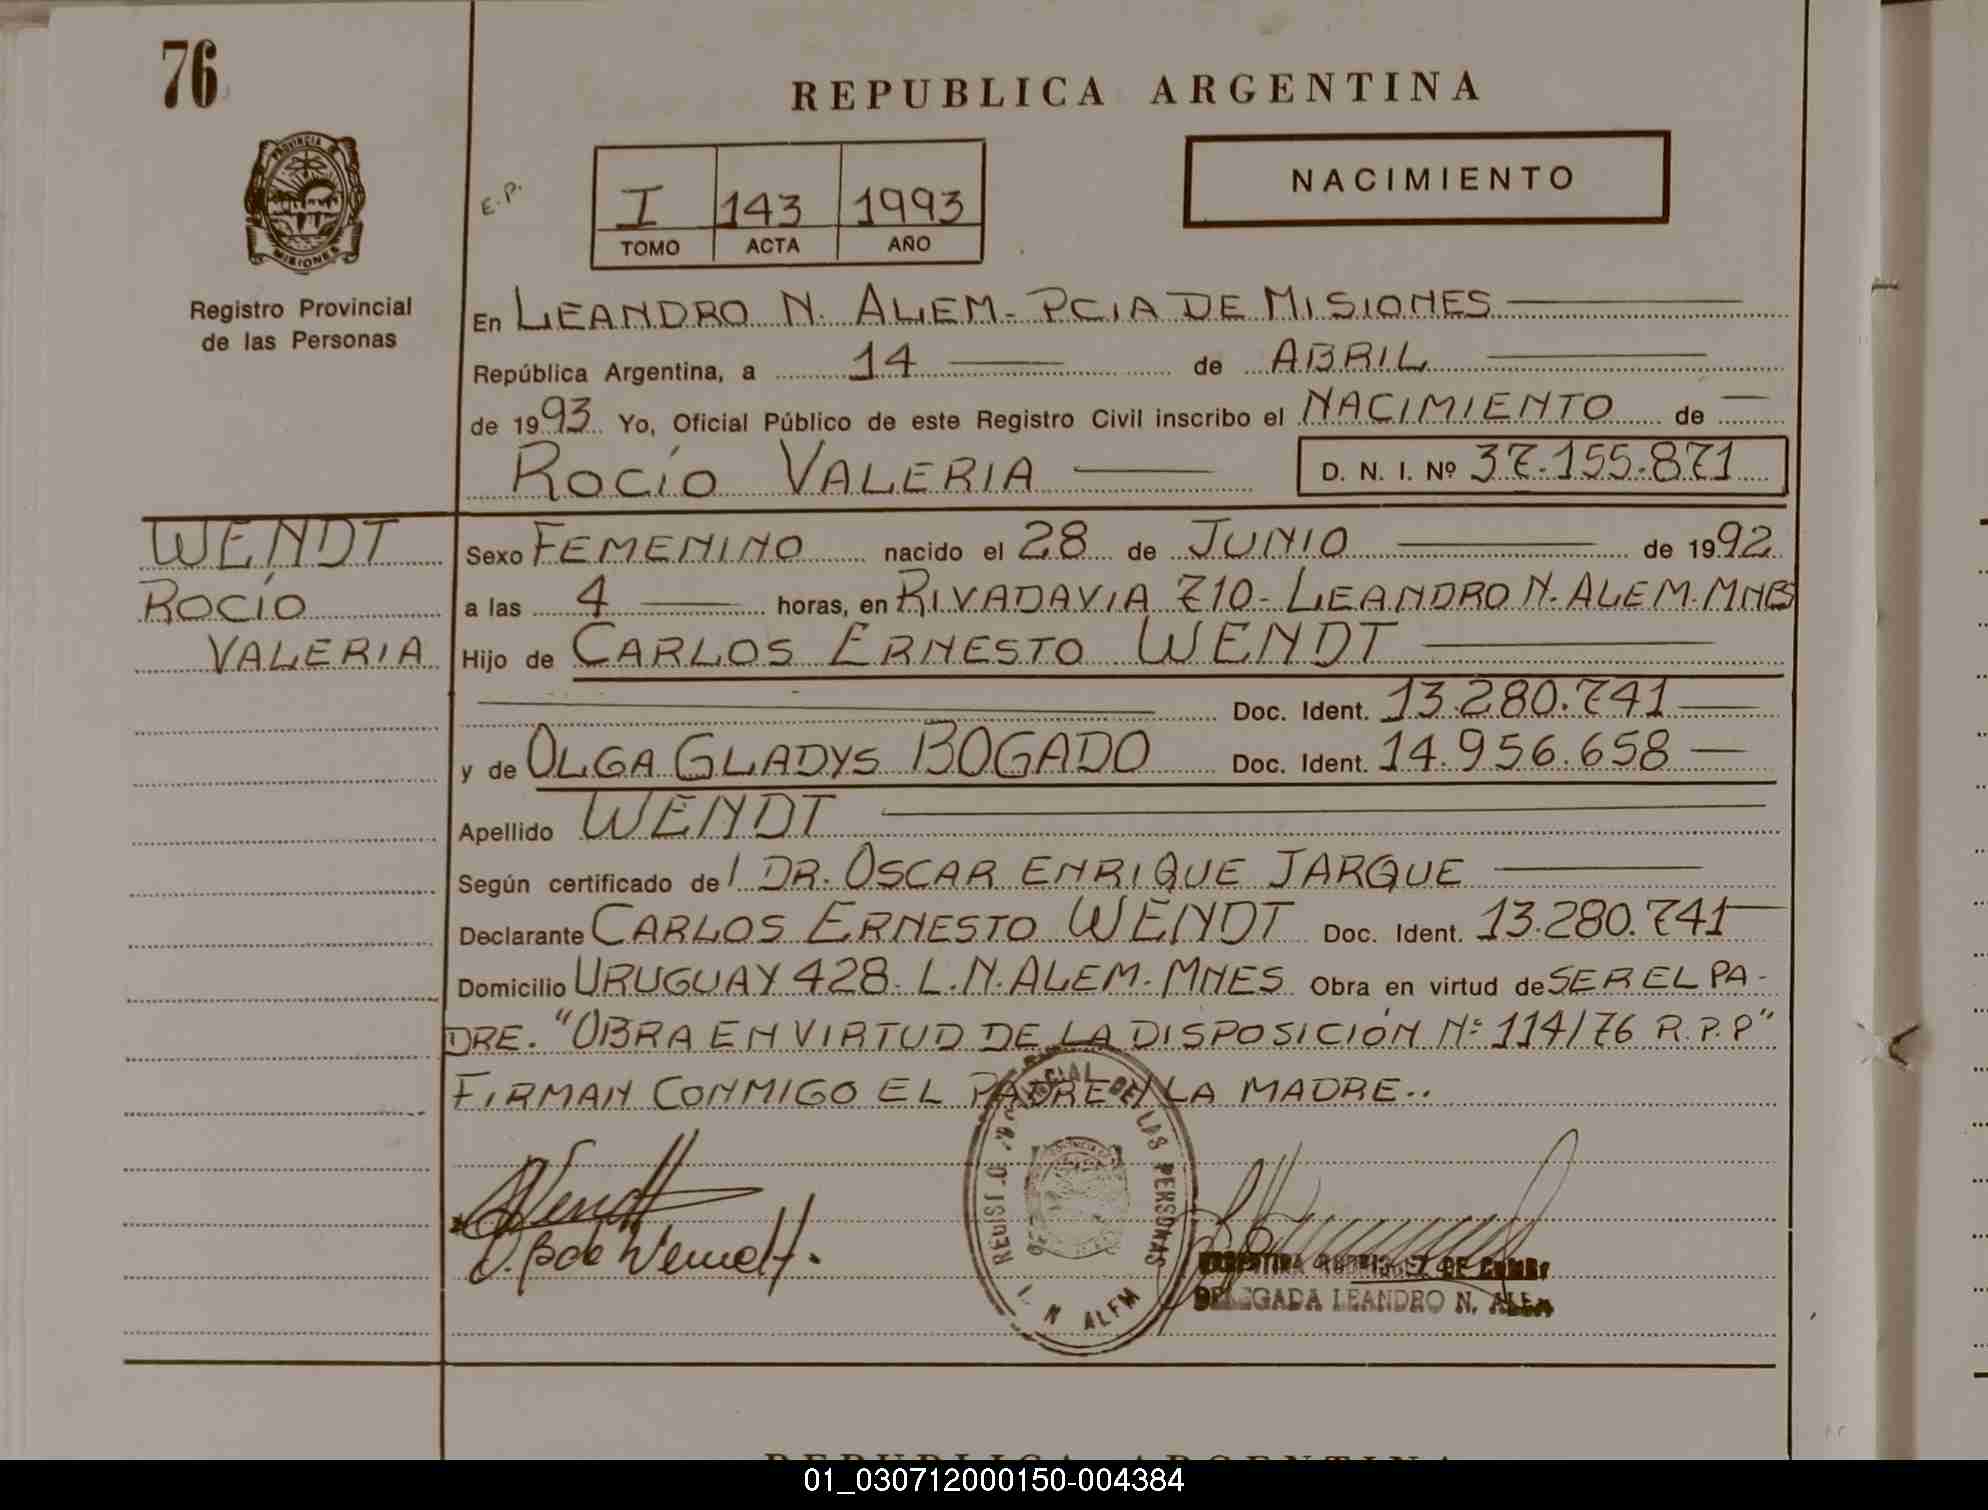 76
REPUBLICA ARGENTINA
PROVINCIA DE
MISIONES
Registro Provincial
de las Personas
E.P.
I 143 1993
TOMO ACTA AÑO
NACIMIENTO
En LEANDRO N. ALEM - PCIA DE MISIONES
República Argentina, a 14 de ABRIL
de 1993 Yo, Oficial Público de este Registro Civil inscribo el NACIMIENTO de
ROCÍO VALERIA D. N. I. Nº 37.155.871
WENDT
ROCÍO
VALERIA
Sexo FEMENINO nacido el 28 de JUNIO de 1992
a las 4 horas, en RIVADAVIA 710 - LEANDRO N. ALEM. MNES
Hijo de CARLOS ERNESTO WENDT
Doc. Ident. 13.280.741
y de OLGA GLADYS BOGADO Doc. Ident. 14.956.658
Apellido WENDT
Según certificado del DR. OSCAR ENRIQUE JARQUE
Declarante CARLOS ERNESTO WENDT Doc. Ident. 13.280.741
Domicilio URUGUAY 428 - L.N. ALEM - MNES Obra en virtud de SER EL PA-
DRE. "OBRA EN VIRTUD DE LA DISPOSICIÓN Nº 114/76 R.P.P"
FIRMAN CONMIGO EL PADRE Y LA MADRE..
Wendt
O. B de Wendt.
DE LAS PERSONAS
L. N. ALEM
RODRIGUEZ DE
DELEGADA LEANDRO N. ALEM
REPUBLICA ARGENTINA
01_030712000150-004384